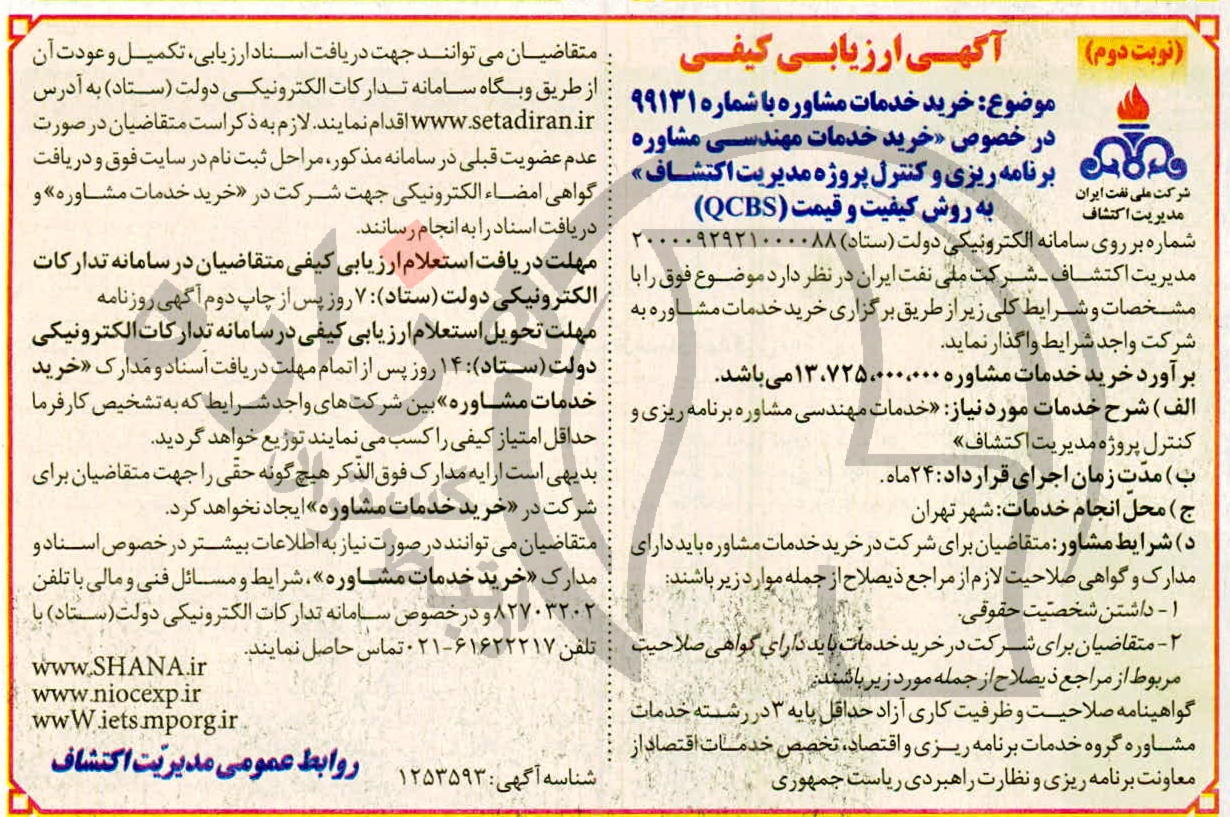 (نوبت دوم)
آگهی ارزیابی کیفی
شرکت ملی نفت ایران
مدیریت اکتشاف
موضوع: خرید خدمات مشاوره با شماره ۹۹۱۳۱
در خصوص «خرید خدمات مهندسی مشاوره
برنامه ریزی و کنترل پروژه مدیریت اکتشاف»
به روش کیفیت و قیمت (QCBS)
شماره بر روی سامانه الکترونیکی دولت (ستاد) ۲۰۰۰۰۹۲۹۲۱۰۰۰۰۸۸
مدیریت اکتشاف ـ شرکت ملی نفت ایران در نظر دارد موضوع فوق را با
مشخصات و شرایط کلی زیر از طریق برگزاری خرید خدمات مشاوره به
شرکت واجد شرایط واگذار نماید.
برآورد خرید خدمات مشاوره ۱۳،۷۲۵،۰۰۰،۰۰۰ می باشد.
الف) شرح خدمات مورد نیاز: «خدمات مهندسی مشاوره برنامه ریزی و
کنترل پروژه مدیریت اکتشاف»
ب) مدّت زمان اجرای قرارداد: ۲۴ ماه.
ج) محلّ انجام خدمات: شهر تهران
د) شرایط مشاور: متقاضیان برای شرکت در خرید خدمات مشاوره باید دارای
مدارک و گواهی صلاحیت لازم از مراجع ذیصلاح از جمله موارد زیر باشند:
۱- داشتن شخصیّت حقوقی.
۲- متقاضیان برای شرکت در خرید خدمات باید دارای گواهی صلاحیت
مربوط از مراجع ذیصلاح از جمله مورد زیر باشند:
گواهینامه صلاحیت و ظرفیت کاری آزاد حداقل پایه ۳ در رشته خدمات
مشاوره گروه خدمات برنامه ریزی و اقتصاد، تخصص خدمات اقتصاد از
معاونت برنامه ریزی و نظارت راهبردی ریاست جمهوری
متقاضیان می توانند جهت دریافت اسناد ارزیابی، تکمیل و عودت آن
از طریق وبگاه سامانه تدارکات الکترونیکی دولت (ستاد) به آدرس
www.setadiran.ir اقدام نمایند. لازم به ذکر است متقاضیان در صورت
عدم عضویت قبلی در سامانه مذکور، مراحل ثبت نام در سایت فوق و دریافت
گواهی امضاء الکترونیکی جهت شرکت در «خرید خدمات مشاوره» و
دریافت اسناد را به انجام رسانند.
مهلت دریافت استعلام ارزیابی کیفی متقاضیان در سامانه تدارکات
الکترونیکی دولت (ستاد): ۷ روز پس از چاپ دوم آگهی روزنامه
مهلت تحویل استعلام ارزیابی کیفی در سامانه تدارکات الکترونیکی
دولت (ستاد): ۱۴ روز پس از اتمام مهلت دریافت اسناد و مدارک «خرید
خدمات مشاوره» بین شرکت های واجد شرایط که به تشخیص کارفرما
حداقل امتیاز کیفی را کسب می نمایند توزیع خواهد گردید.
بدیهی است ارایه مدارک فوق الذّکر هیچ گونه حقّی را جهت متقاضیان برای
شرکت در «خرید خدمات مشاوره» ایجاد نخواهد کرد.
متقاضیان می توانند در صورت نیاز به اطلاعات بیشتر در خصوص اسناد و
مدارک «خرید خدمات مشاوره»، شرایط و مسائل فنی و مالی با تلفن
۸۲۷۰۳۲۰۲ و در خصوص سامانه تدارکات الکترونیکی دولت(ستاد) با
تلفن ۶۱۶۲۲۲۱۷-۰۲۱ تماس حاصل نمایند.
www.SHANA.ir
www.niocexp.ir
wwW.iets.mporg.ir
شناسه آگهی: ۱۲۵۳۵۹۳
روابط عمومی مدیریّت اکتشاف